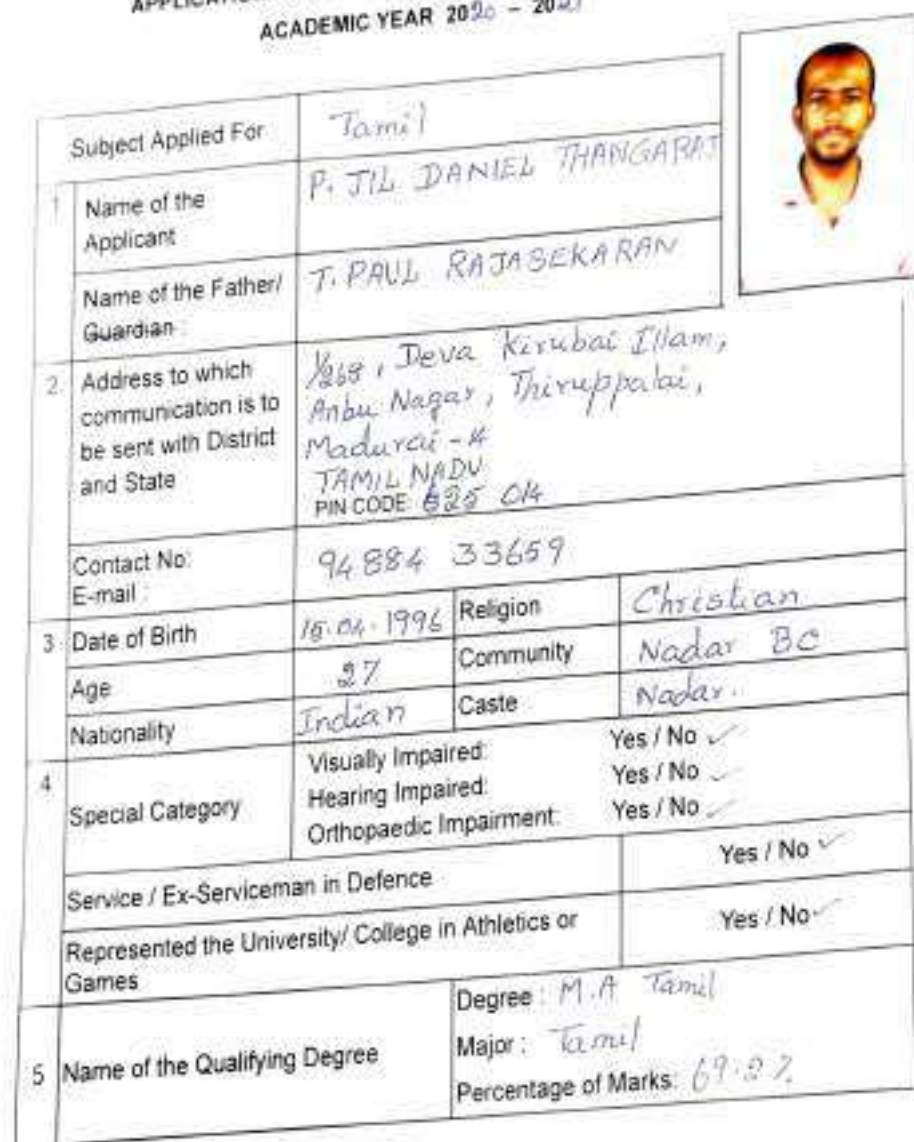 ACADEMIC YEAR 2020 - 2021
Subject Applied For Tamil
1 Name of the Applicant P. JIL DANIEL THANGARAJ
Name of the Father/ Guardian : T. PAUL RAJASEKARAN
2. Address to which communication is to be sent with District and State
1/268, Deva Kirubai Illam,
Anbu Nagar, Thiruppalai,
Madurai - 14
TAMIL NADU
PIN CODE: 625 014
Contact No: 94884 33659
E-mail :
3 Date of Birth 15.04.1996 Religion Christian
Age 27 Community Nadar BC
Nationality Indian Caste Nadar..
4 Special Category
Visually Impaired: Yes / No ✓
Hearing Impaired: Yes / No ✓
Orthopaedic Impairment: Yes / No ✓
Service / Ex-Serviceman in Defence Yes / No ✓
Represented the University/ College in Athletics or Games Yes / No ✓
5 Name of the Qualifying Degree
Degree : M.A Tamil
Major : Tamil
Percentage of Marks: 69.2%